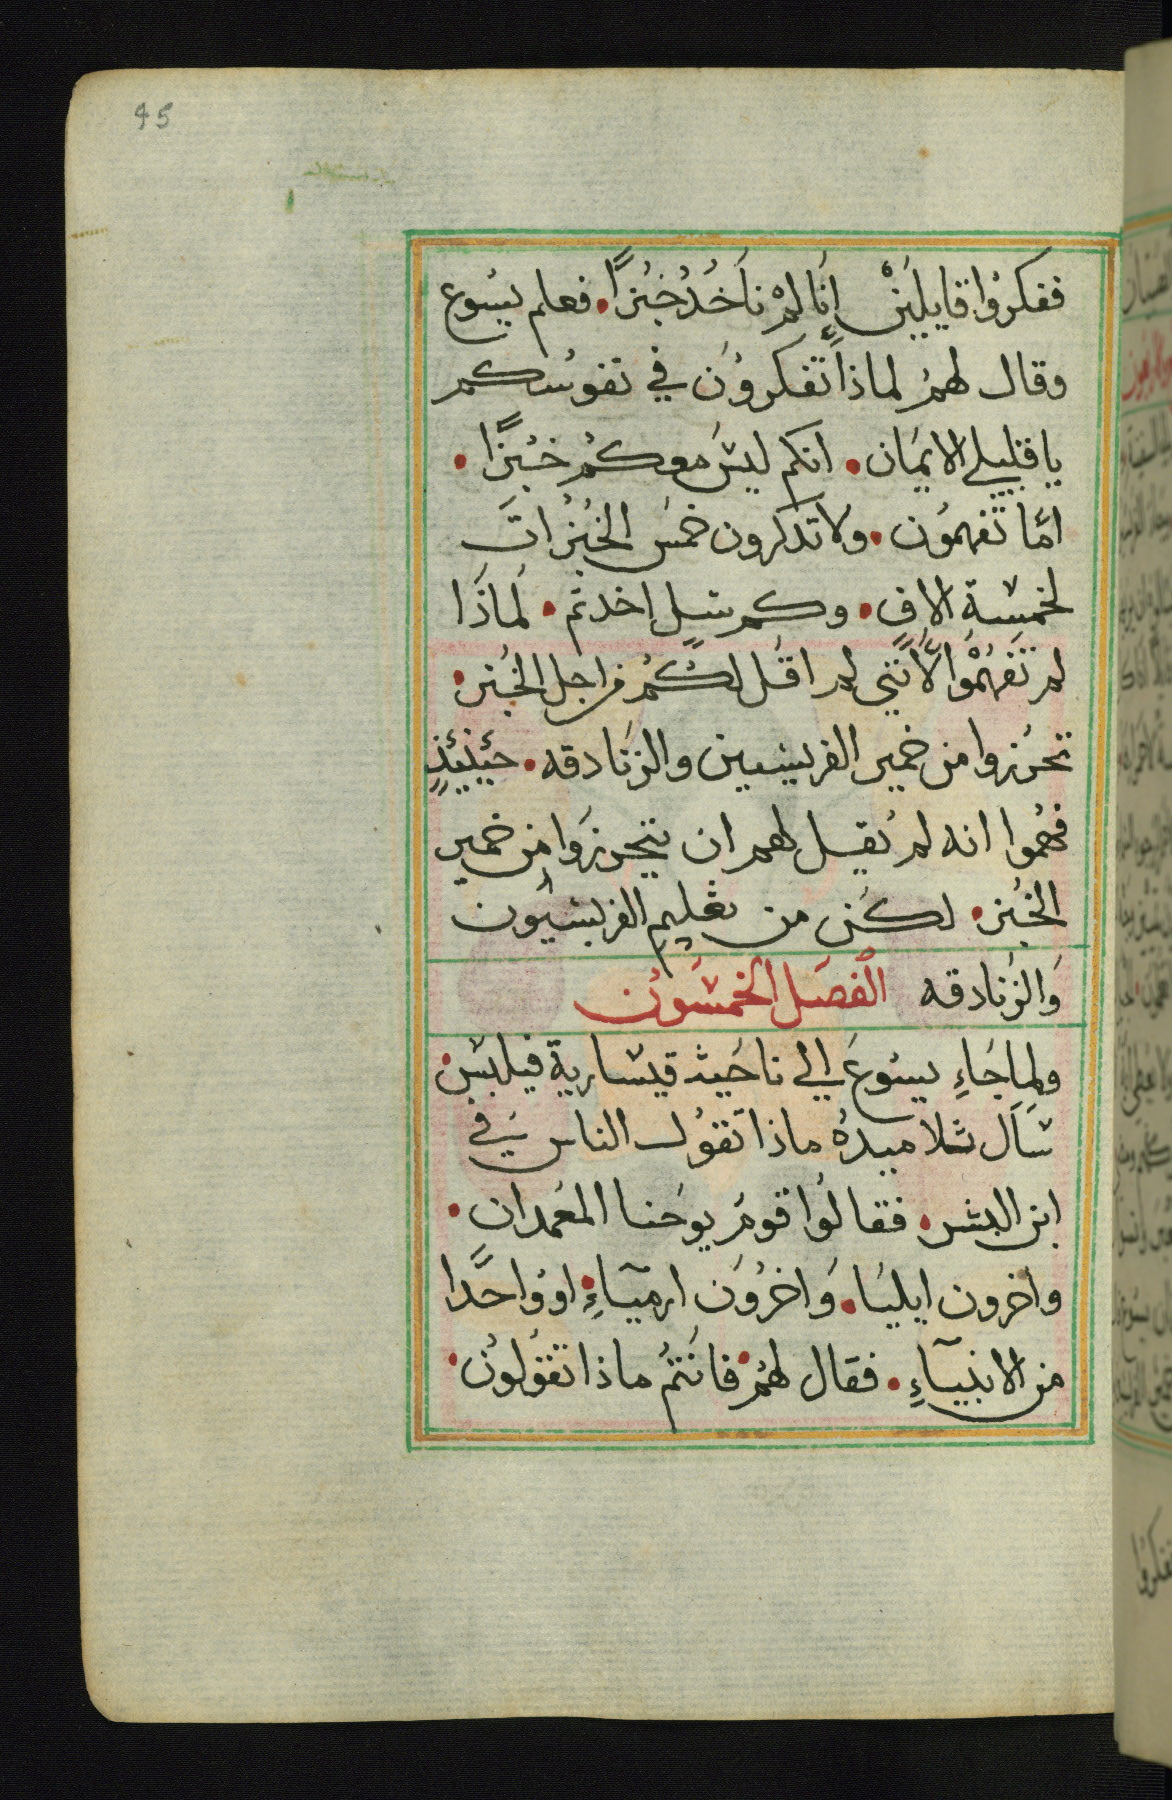 45
ففكرُوا قايلَينْ إنَا لمْ ناَخُدُ خبُزاً. فعلم يسُوع
وقال لهمُ لماذا تفكروُنَ في نفوسُكم
يا قليلي الايمَان. انكم ليسَ معكمُ خبُزاً.
امَا تفهموُن. ولا تذكرون خمسُ الخبُزاتَ
لخمسة الاف. وكم سل اخدتم. لمَاذَا
لم تَفهمُوْا لأنني لم اقُل لكُمُ من اجل الخبُز.
تحرزوا من خمير الفريسيين والزنَادقه. حينئيذٍ
فهُموا انه لم يُقيل لهم ان يتحرزوَا من خمير
الخبُز. لكنُ من تعليم الفريسيُون
وَالزنادقه الفصَل الخمسوُن
ولما جَاءِ يسُوعَ الي ناحَية قيسارية فيلبس.
سَاَل تلاميدهُ ماذا تَقوُل الناس فيَ
ابن البشر. فقالوُا قومُ يوحَنا المعَمدان.
واخرون ايليَا. وَاخرُوَن ارميَآءِ. اووُاحَدا
من الانبيَآءِ. فقال لهُمْ فانَتمُ ماذا تقوُلوُن.